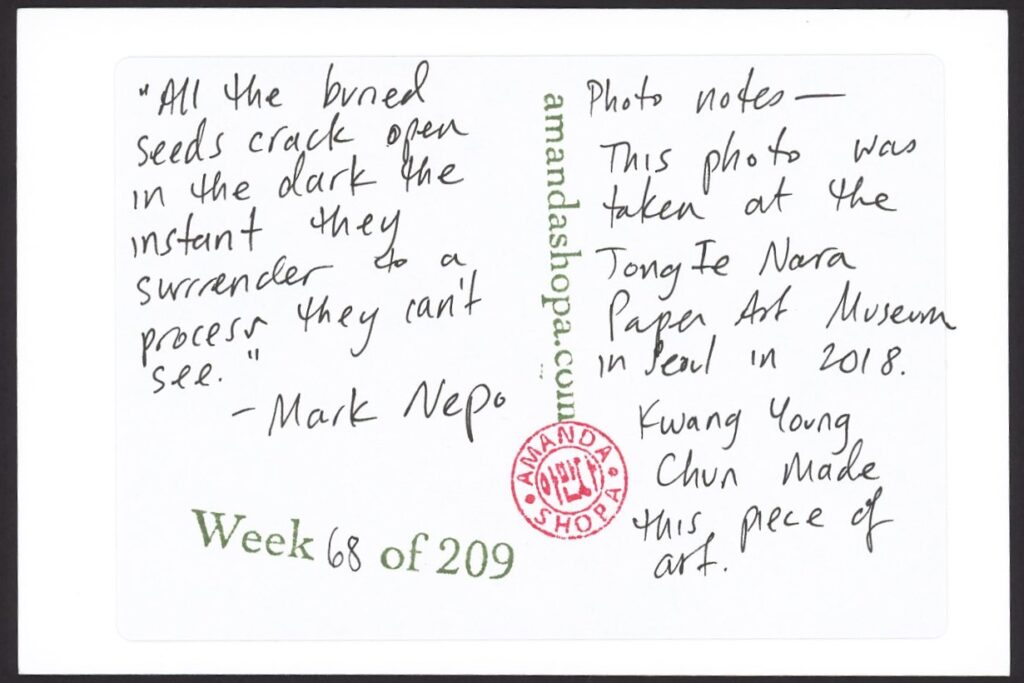 "All the buried
seeds crack open
in the dark the
instant they
surrender to a
process they can't
see."
- Mark Nepo
Week 68 of 209
amandashopa.com
AMANDA
SHOPA
Photo notes—
This photo was
taken at the
Tong Ie Nara
Paper Art Museum
in Seoul in 2018.
Kwang Young
Chun made
this piece of
art.